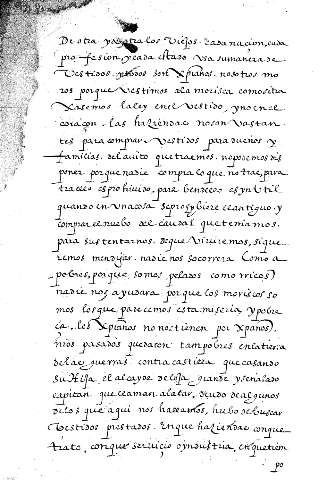 De otra y de otra los viejos. cada nacion, cada
profession, y cada estado usa su manera de
Vestidos. y todos son xpianos. nosotros mo
ros porque Vestimos a la morisca como si tra
xesemos la ley en el Vestido, y no en el
coraçon. las haziendas no son vastan
tes para comprar Vestidos para dueños y
familias. del auito que traemos. no podemos dis
poner porque nadie compra lo que no trae, para
traello es prohiuido, para vendello es ynutil
quando en una cosa se prohybiere el antiguo y
comprare el nuebo del caudal que teniamos.
para sustentarnos. de que Viviremos, si que
remos mendigar. nadie nos socorrera como a
pobres, porque somos pelados como ricos,
nadie nos ayudara porque los moriscos so
mos los que padecemos esta miseria y pobre
ça. los xpianos no nos tienen por xpanos)
nros pasados quedaron tan pobres en la tierra
de las guerras contra castilla que casando
su Hija el alcayde de loja grande y señalado
capitan que llaman alatar, deudo de algunos
de los que aqui nos hallamos, hubo de buscar
Vestidos prestados. En que haziendas con que
trato, con que servicio o yndustria, en que tiem
po